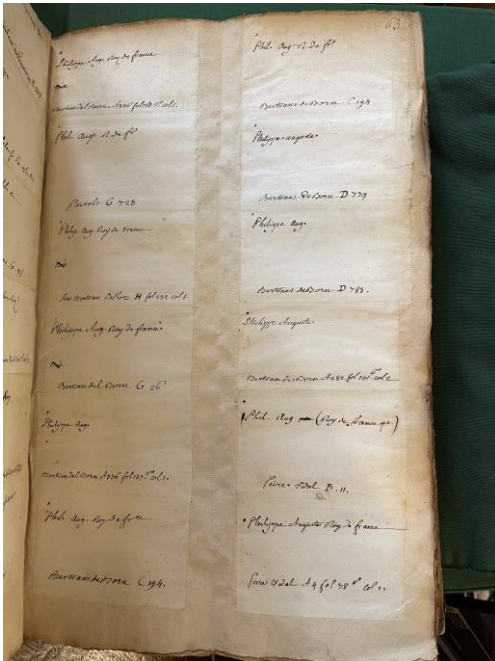 63
Philippe Aug. Roy de france
Bertran del Born. A 336 fol 107 vo col 1.
Phil. Aug. R. de fr.
G 728
Phil. Aug. Roy de
H fol 232 col 1.
Philippe Aug. Roy de france
Bertran del Born. G 26
Philippe Aug.
Bertran del Born A 336 fol 107 vo col 1.
Phil. Aug. Roy de france
Bertrans de Born C 194.
Phil. Aug. R. de fr.
Bertrans de Born C 194
Philippe auguste.
Bertrans de Born D 779
Philippe Aug.
Bertrans de Born D 783.
Philippe Auguste.
Bertran de Born A 282 fol 191 vo col 2
Phil. Aug. (Roy de france
Peire Vidal B. 11.
Philippe Auguste Roy de france
Peire Vidal A 4 fol 38 col